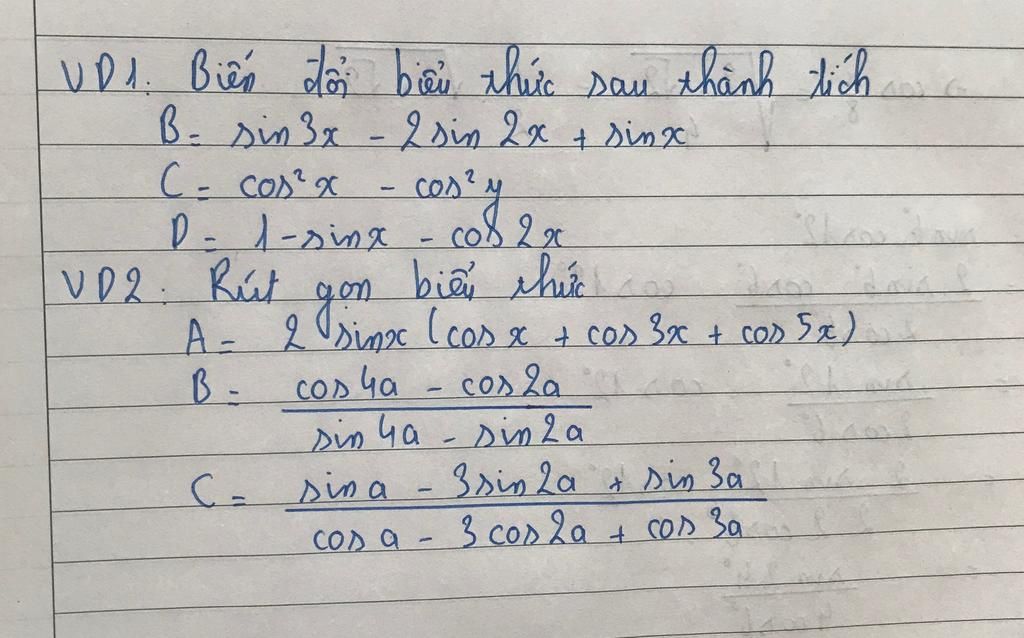 VD1. Biến đổi biểu thức sau thành tích
B = sin3x - 2sin 2x + sinx
C = cos² x - cos² y
D = 1 - sinx - cos2x
VD2: Rút gọn biểu thức
A = 2 sinx (cos x + cos 3x + cos 5x)
B = cos4a - cos2a
sin 4a - sin2a
C = sin a - 3sin2a + sin 3a
cos a - 3 cos2a + cos 3a